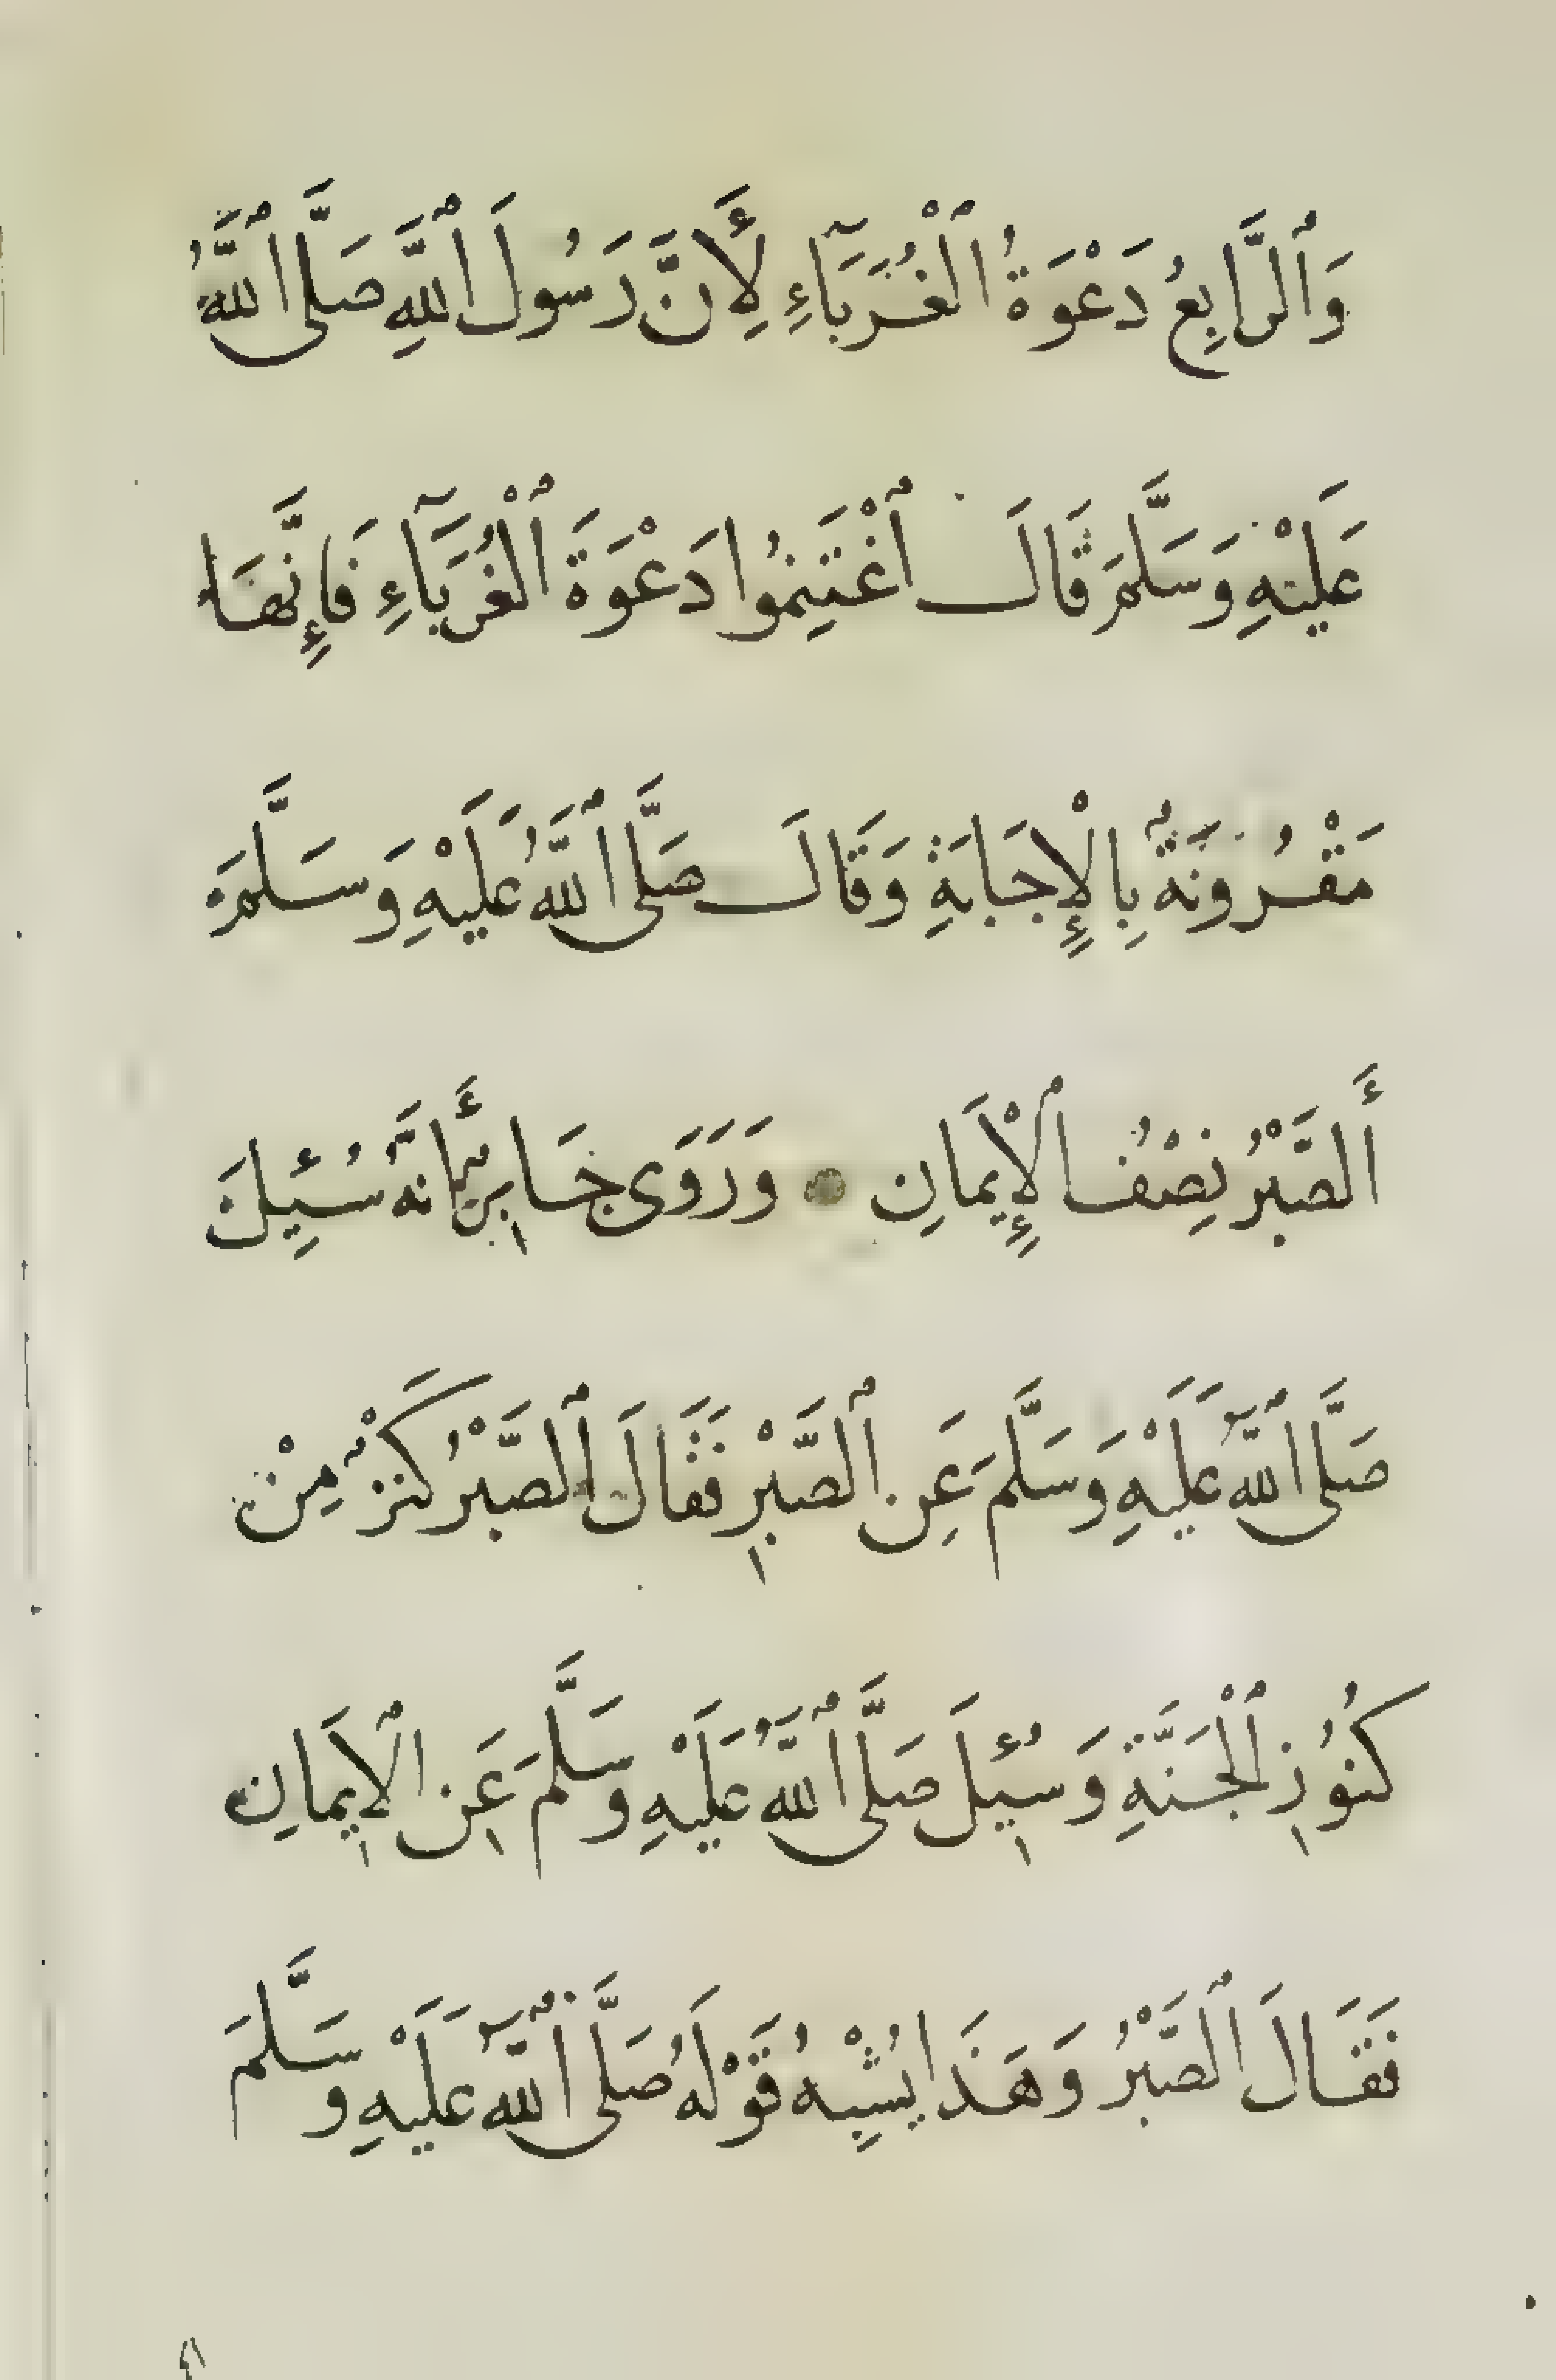 وَٱلرَّابِعُ دَعْوَةُ ٱلْغُرَبَآءِ لِأَنَّ رَسُولَ ٱللَّهِ صَلَّى ٱللَّهُ
عَلَيْهِ وَسَلَّمَ قَالَ ٱغْتَنِمُوا دَعْوَةَ ٱلْغُرَبَآءِ فَإِنَّهَا
مَقْرُونَةٌ بِالْإِجَابَةِ وَقَالَ صَلَّى ٱللَّهُ عَلَيْهِ وَسَلَّمَ
أَلصَّبْرُ نِصْفُ ٱلْإِيمَانِ وَرَوَى جَابِرٌ أَنَّهُ سُئِلَ
صَلَّى ٱللَّهُ عَلَيْهِ وَسَلَّمَ عَنِ ٱلصَّبْرِ فَقَالَ ٱلصَّبْرُ كَنْزٌ مِنْ
كُنُوزِ ٱلْجَنَّةِ وَسُئِلَ صَلَّى ٱللَّهُ عَلَيْهِ وَسَلَّمَ عَنِ الْإِيمَانِ
فَقَالَ ٱلصَّبْرُ وَهَذَا يُشْبِهُ قَوْلَهُ صَلَّى ٱللَّهُ عَلَيْهِ وَسَلَّمَ